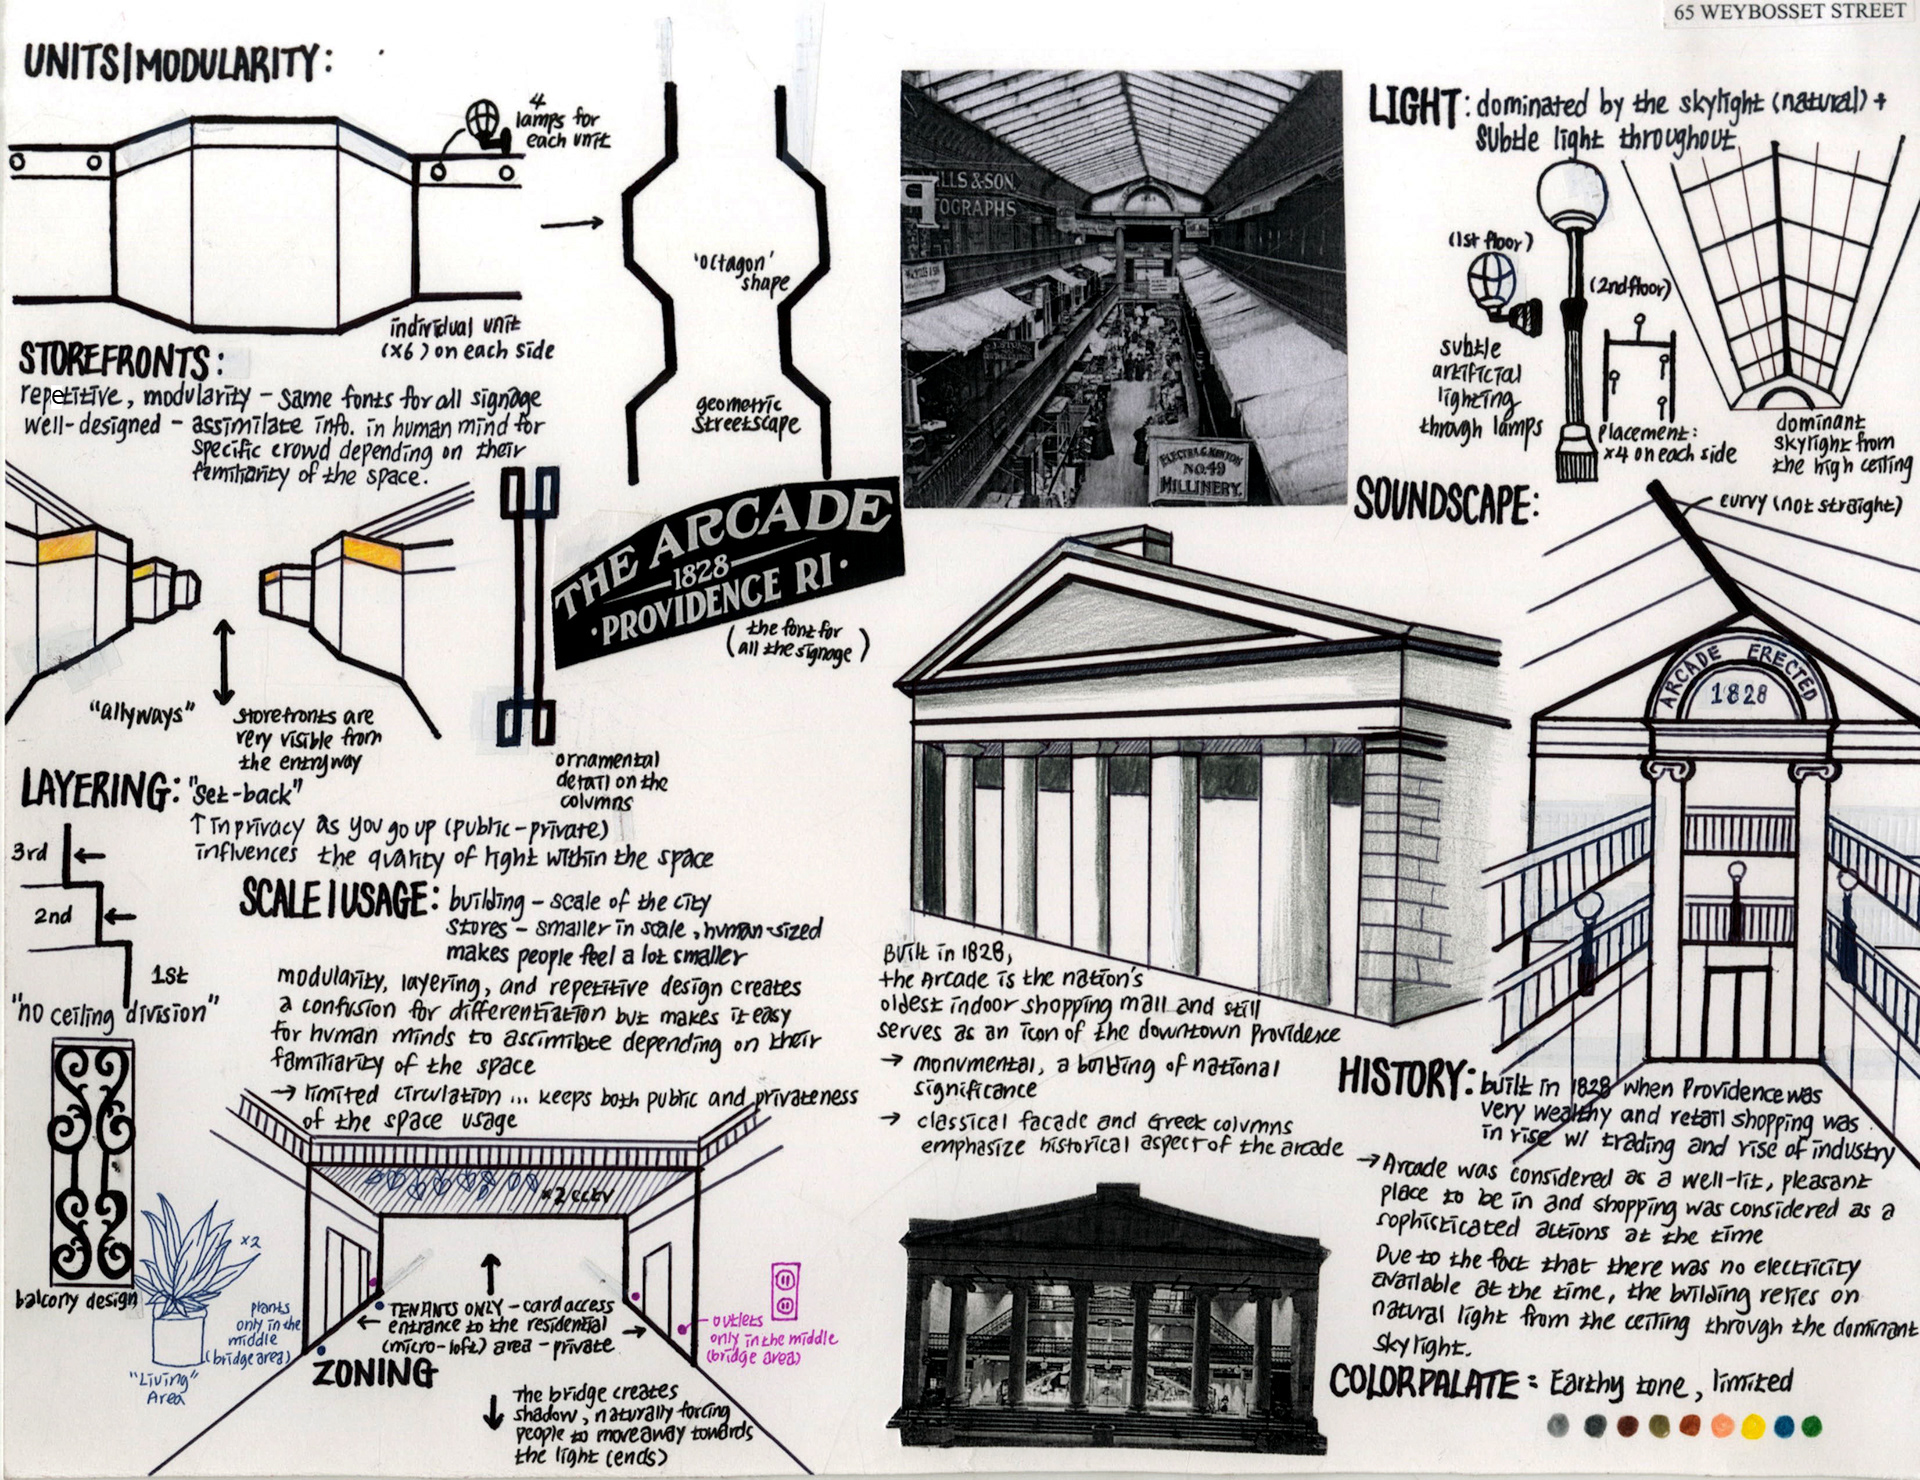 65 WEYBOSSET STREET
UNITS|MODULARITY:
4
lamps for
each unit
individual unit
(x6) on each side
'octagon'
shape
geometric
streetscape
STOREFRONTS:
repetitive, modularity - same fonts for all signage
well-designed - assimilate info. in human mind for
specific crowd depending on their
familiarity of the space.
"allyways"
storefronts are
very visible from
the entryway
THE ARCADE
1828
·PROVIDENCE RI·
(the font for
all the signage)
ornamental
detail on the
columns
LAYERING: "set-back"
↑ in privacy as you go up (public-private)
influences the quality of light within the space
3rd
2nd
1st
"no ceiling division"
balcony design
SCALE|USAGE: building - scale of the city
stores - smaller in scale, human-sized
makes people feel a lot smaller
modularity, layering, and repetitive design creates
a confusion for differentiation but makes it easy
for human minds to assimilate depending on their
familiarity of the space
→ limited circulation ... keeps both public and privateness
of the space usage
x2 cctv
x2
plants
only in the
middle
(bridge area)
"Living"
Area
TENANTS ONLY - card access
entrance to the residential
(micro-loft) area - private
outlets
only in the middle
(bridge area)
ZONING
The bridge creates
shadow, naturally forcing
people to move away towards
the light (ends)
LLS & SON.
TOGRAPHS
P
ELECTRA G. NORTON
NO.49
MILLINERY.
Built in 1828,
the Arcade is the nation's
oldest indoor shopping mall and still
serves as an icon of the downtown providence
→ monumental, a building of national
significance
→ classical facade and Greek columns
emphasize historical aspect of the arcade
LIGHT: dominated by the skylight (natural) +
subtle light throughout
(1st floor)
(2nd floor)
subtle
artificial
lighting
through lamps
Placement:
x4 on each side
dominant
skylight from
the high ceiling
SOUNDSCAPE:
curvy (not straight)
ARCADE ERECTED
1828
HISTORY: built in 1828 when Providence was
very wealthy and retail shopping was
in rise w/ trading and rise of industry
→ Arcade was considered as a well-lit, pleasant
place to be in and shopping was considered as a
sophisticated actions at the time
Due to the fact that there was no electricity
available at the time, the building relies on
natural light from the ceiling through the dominant
skylight.
COLORPALATE: Earthy tone, limited